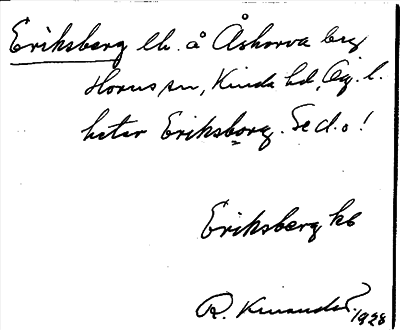 Eriksberg lh. å Åskorva by
Horns sn, Kinda hd, Ög. l.
heter Eriksborg. Se d.o!
Eriksberg hb
R. 1928